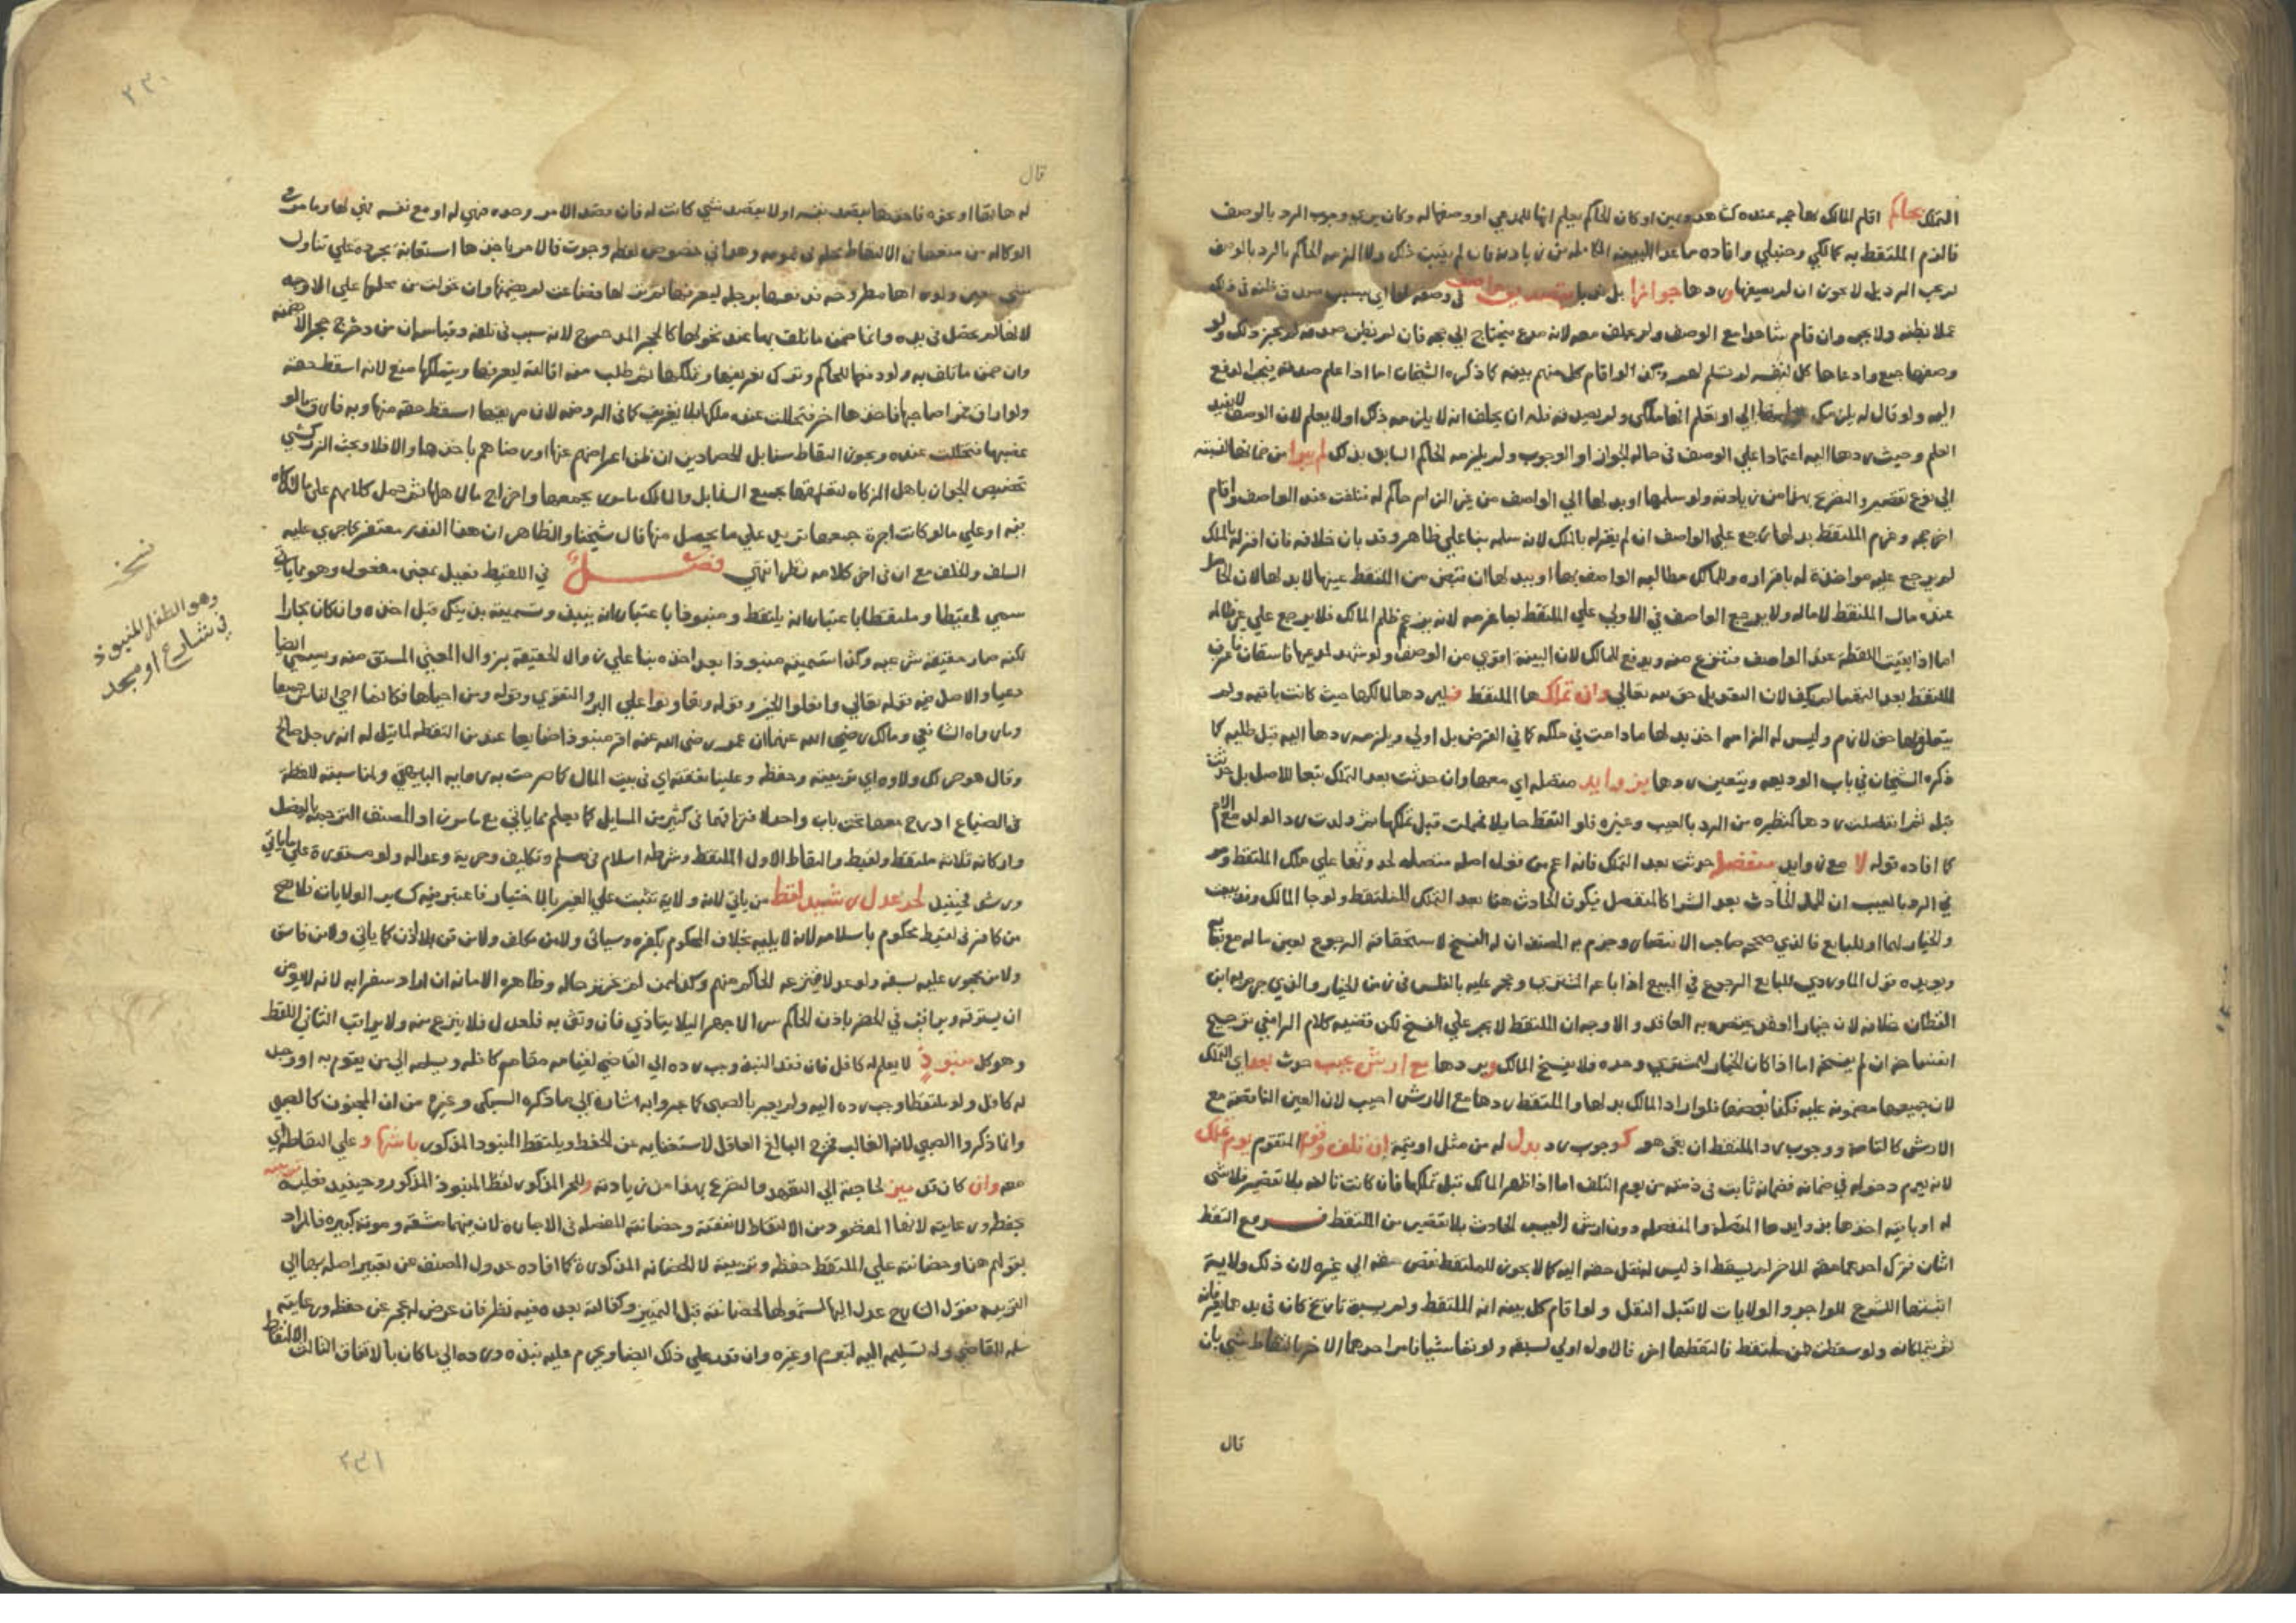 التملك بحاكم اقام المالك بها حجة عنده كشاهد ويمين او كان الحاكم يعلم انها للمدعي او وصفها له وكان يري وجوب الرد بالوصف
فالزم الملتقط به كمالكي وحنبلي وافاده ما عدا البينة الكاملة من زيادته فان لم يثبت ذلك ولا الزمه الحاكم بالرد بالوصف
لم يجب الرد بل لا يجوز ان لم يصفها وردها جوازا بل ندبا بتصديق واصف في وصفه لها اي بسبب صدق ظنه في ذلك
عملا بظنه ولا يجب وان قام شاهدا مع الوصف ولم يحلف معه لانه مدع فيحتاج الي حجة فان لم يظن صدقه لم يجز ذلك ولو
وصفها جمع وادعاها كل لنفسه لم تسلم لهم وكذا لو اقام كل منهم بينة كما ذكره الشيخان اما اذا علم صدقه فيجب الدفع
اليه ولو قال له يلزمك تسليمها الي او تعلم انها ملكي ولم يصدقه فله ان يحلف انه لا يلزمه ذلك او لا يعلم لان الوصف لا يفيد
العلم وحيث ردها اليه اعتمادا علي الوصف في حالة الجواز او الوجوب ولم يلزمه الحاكم السابق بذلك لم يبرا من ضمانها لنسبته
الي نوع تقصير والتصريح بهذا من زيادته ولو سلمها او بدلها الي الواصف من غير الزام حاكم له فتلفت عند الواصف واقام
اخر حجة وغرم الملتقط بدلها رجع علي الواصف ان لم يقر له بالملك لانه سلمه بناء علي ظاهر وقد بان خلافه فان اقر له بالملك
لم يرجع عليه مواخذة له باقراره وللمالك مطالبة الواصف بها او ببدلها ان قبض من الملتقط عينها لا بدلها لان الحاصل
عنده مال الملتقط لا ماله ولا يرجع الواصف في الاولي علي الملتقط بما غرمه لانه يزعم ظلم المالك فلا يرجع علي غير ظالمه
اما اذا بقيت اللقطة عند الواصف فتنزع منه وتدفع للمالك لان البينة اقوي من الوصف ولو شهد لمدعيها فاسقان باعتراف
الملتقط بعد التعديل لم يكف لان التعديل حق لله تعالي وان تملكها الملتقط فليردها لمالكها حيث كانت باقية ولم
يتعلق بها حق لازم وليس له الزامه اخذ بدلها ما دامت في ملكه كما في القرض بل اولي ويلزمه ردها اليه قبل طلبه كما
ذكره الشيخان في باب الوديعة ويتعين ردها بزوايد متصله اي معها وان حدثت بعد التملك تبعا للاصل بل لو حدثت
قبله ثم انفصلت ردها كنظيره من الرد بالعيب وغيره فلو التقط حايلا فحملت قبل تملكها ثم ولدت رد الولد مع الام
كما افاده قوله لا مع زوايد منفصله حدثت بعد التملك فانه اعم من قول اصله منفصله لحدوثها علي ملك الملتقط ومر
في الرد بالعيب ان الحمل الحادث بعد الشرا كالمنفصل فيكون الحادث هنا بعد التملك للملتقط ولو جا المالك وقد بيعت
والخيار لهما او للبايع فالذي صححه صاحب الانتصار وجزم به المصنف ان له الفسخ لاستحقاقه الرجوع لعين ماله مع بقايه
ويويده قول الماوردي للبايع الرجوع في المبيع اذا باعه المشتري وحجر عليه بالفلس في زمن الخيار والذي جزم به ابن
القطان خلافه لان خيار العقد يختص به العاقد والاوجه ان الملتقط لا يجبر علي الفسخ لكن قضية كلام الرافعي ترجيح
انفساخه ان لم يفسخه اما اذا كان الخيار للمشتري وحده فلا يفسخ المالك ويردها مع ارش عيب حدث بعد اي التملك
لان جميعها مضمونة عليه فكذا بعضها فلو اراد المالك بدلها والملتقط ردها مع الارش اجيب لان العين الناقصة مع
الارش كالتامة ووجوب رد الملتقط ان بقي هو كوجوب رد بدل له من مثل او قيمة ان تلف وقوم المتقوم يوم تملك
لانه يوم دخوله في ضمانه فضمانه ثابت في ذمته من يوم التلف اما اذا ظهر المالك قبل تملكها فان كانت تالفة بلا تقصير فلا شي
له او باقية اخذها بزوايدها المتصلة والمنفصلة دون ارش العيب الحادث بلا تقصير من الملتقط فــرع التقط
اثنان فترك احدهما حقه للاخر لم يسقط اذ ليس له نقل حقه اليه كما لا يجوز للملتقط نقض حقه الي غيره لان ذلك ولاية
اثبتها الشرع للواجد والولايات لا تقبل النقل ولو اقام كل بينة انه الملتقط ولم يسبق تاريخ كان في يدهما يعرفانه
ثم يتملكانه ولو سقطت من ملتقط فالتقطها اخر فالاول اولي لسبقه ولو تماشيا فامر احدهما الاخر بالتقاط شي بان
قال
قال
له هاتها او نحوه فاخذها بقصد نفسه او لا بقصد شي كانت له فان قصد الامر وحده فهي له او مع نفسه فهي لهما وما مر في
الوكالة من منعها في الالتقاط محله في عمومه وهذا في خصوص لقطه وجوت فالامر باخذها استعانة مجردة علي تناول
شي معين ولو راها مطروحة فدفعها برجله ليعرفها لم ترفع لها فضاعت لم يضمنها وان تحولت من محلها علي الاوجه
لانها لم تحصل في يده وانما ضمن ما تلف بها عند تحولها كالحجر المدحرج لانه سبب في تلفه وقياسه ان من دحرج حجرا ضمنه
وان ضمن ما تلف به ولو دفعها للحاكم وترك تعريفها وتملكها ثم طلب منه اقالته ليعرفها ويتملكها منع لانه اسقط حقه
ولو اراق خمرا صاحبها فاخذها اخر فتخللت عنده ملكها بلا تعريف كما في الروضة لان مريقها اسقط حقه منها وبه فارق ما لو
غصبها فتخللت عنده ويجوز التقاط سنابل الحصادين ان ظن اعراضهم عنها او رضاهم باخذها والا فلا وبحث الزركشي
تخصيص الجواز باهل الزكاة لتعلقها بجميع السنابل والمالك مامور بجمعها واخراج ما لاهلها ثم حمل كلامهم علي ما لا زكاة
فيه او علي ما لو كانت اجرة جمعها تزيد علي ما يحصل منها قال شيخنا والظاهر ان هذا القدر مغتفر كما جري عليه
السلف والخلف مع ان في اخر كلامه نظرا انتهي فصــل في اللقيط فعيل بمعني مفعول وهو ما ياتي
سمي لقيطا وملقوطا باعتبار انه يلتقط ومنبوذا باعتبار انه ينبذ وتسميته بذينك قبل اخذه وان كان مجازا
لكنه صار حقيقة شرعية وكذا تسميته منبوذا بعد اخذه بناء علي زوال الحقيقة بزوال المعني المشتق منه ويسمي ايضا
دعيا والاصل فيه قوله تعالي وافعلوا الخير وقوله وتعاونوا علي البر والتقوي وقوله ومن احياها فكانما احيا الناس جميعا
وما رواه الشافعي ومالك رضي الله عنهما ان عمر رضي الله عنه اقر منبوذا ضايعا عند من التقطه لما قيل له انه رجل صالح
وقال هو حر لك ولاوه اي تربيته وحفظه وعلينا نفقته اي في بيت المال كما صرحت به رواية البيهقي ولمناسبته للقطة
في الضياع ادرج معها تحت باب واحد لافتراقهما في كثير من المسايل كما يعلم مما ياتي مع ما مر زاد المصنف الترجمة بالفصل
واركانه ثلاثة ملتقط ولقيط والتقاط الاول الملتقط وشرطه اسلام في مسلم وتكليف وحرية وعدالة ولو مستورة علي ما ياتي
ورشد فحينيذ لحر عدل رشيد لقط من ياتي لانه ولاية تثبت علي الغير بالاختيار فاعتبر فيه كساير الولايات فلا يصح
من كافر في لقيط محكوم باسلامه لانه لا يليه بخلاف المحكوم بكفره وسياتي ولا من مكلف ولا من قن بلا اذن كما ياتي ولا من فاسق
ولا من محجور عليه بسفه ولو عدلا فينزعه الحاكم منهم وكذا ممن لم يختبر حاله وظاهره الامانة ان اراد سفرا به لانه لا يومن
ان يسترقه ويراقبه في الحضر باذن الحاكم سرا لا جهرا ليلا يتاذي فان وثق به فلعدل فلا ينزع منه ولا يراقب الثاني اللقط
وهو كل منبوذ لا يعلم له كافل فان فقد النبذ وجب رده الي القاضي لقيامه مقام كافله ويسلمه الي من يقوم به او وجد
له كافل ولو ملتقطا وجب رده اليه ولم يعبر بالصبي كما عبروا به اشارة الي ما ذكره السبكي وغيره من ان المجنون كالصبي
وانما ذكروا الصبي لانه الغالب فخرج البالغ العاقل لاستغنايه عن الحفظ ويلتقط المنبوذ المذكور باشهاد علي التقاطه اي
معه وان كان قد ميز لحاجته الي التعهد والتصريح بهذا من زيادته وللحر المذكور لقط المنبوذ المذكور وحينيذ فعليه تربيته
بحفظه ورعايته لانها المقصود من الالتقاط لا نفقته وحضانته المفصلة في الاجارة لان فيهما مشقة ومونة كبيرة فالمراد
بقولهم هنا وحضانته علي الملتقط حفظه وتربيته لا الحضانة المذكورة كما افاده عدول المصنف عن تعبير اصله بها الي
التربية فقول الشارح عدل اليها لشمولها الحضانة قبل التمييز وكفالته بعده فيه نظر فان عرض له عجز عن حفظه ورعايته
سلمه القاضي وله تسليمه اليه لتبرم او غيره وان قدر علي ذلك ايضا ويحرم عليه نبذه ورده الي ما كان بالاتفاق الثالث الالتقاط
وهو الطفل المنبوذ
في شارع او مسجد
٢٣٠
٢٣١